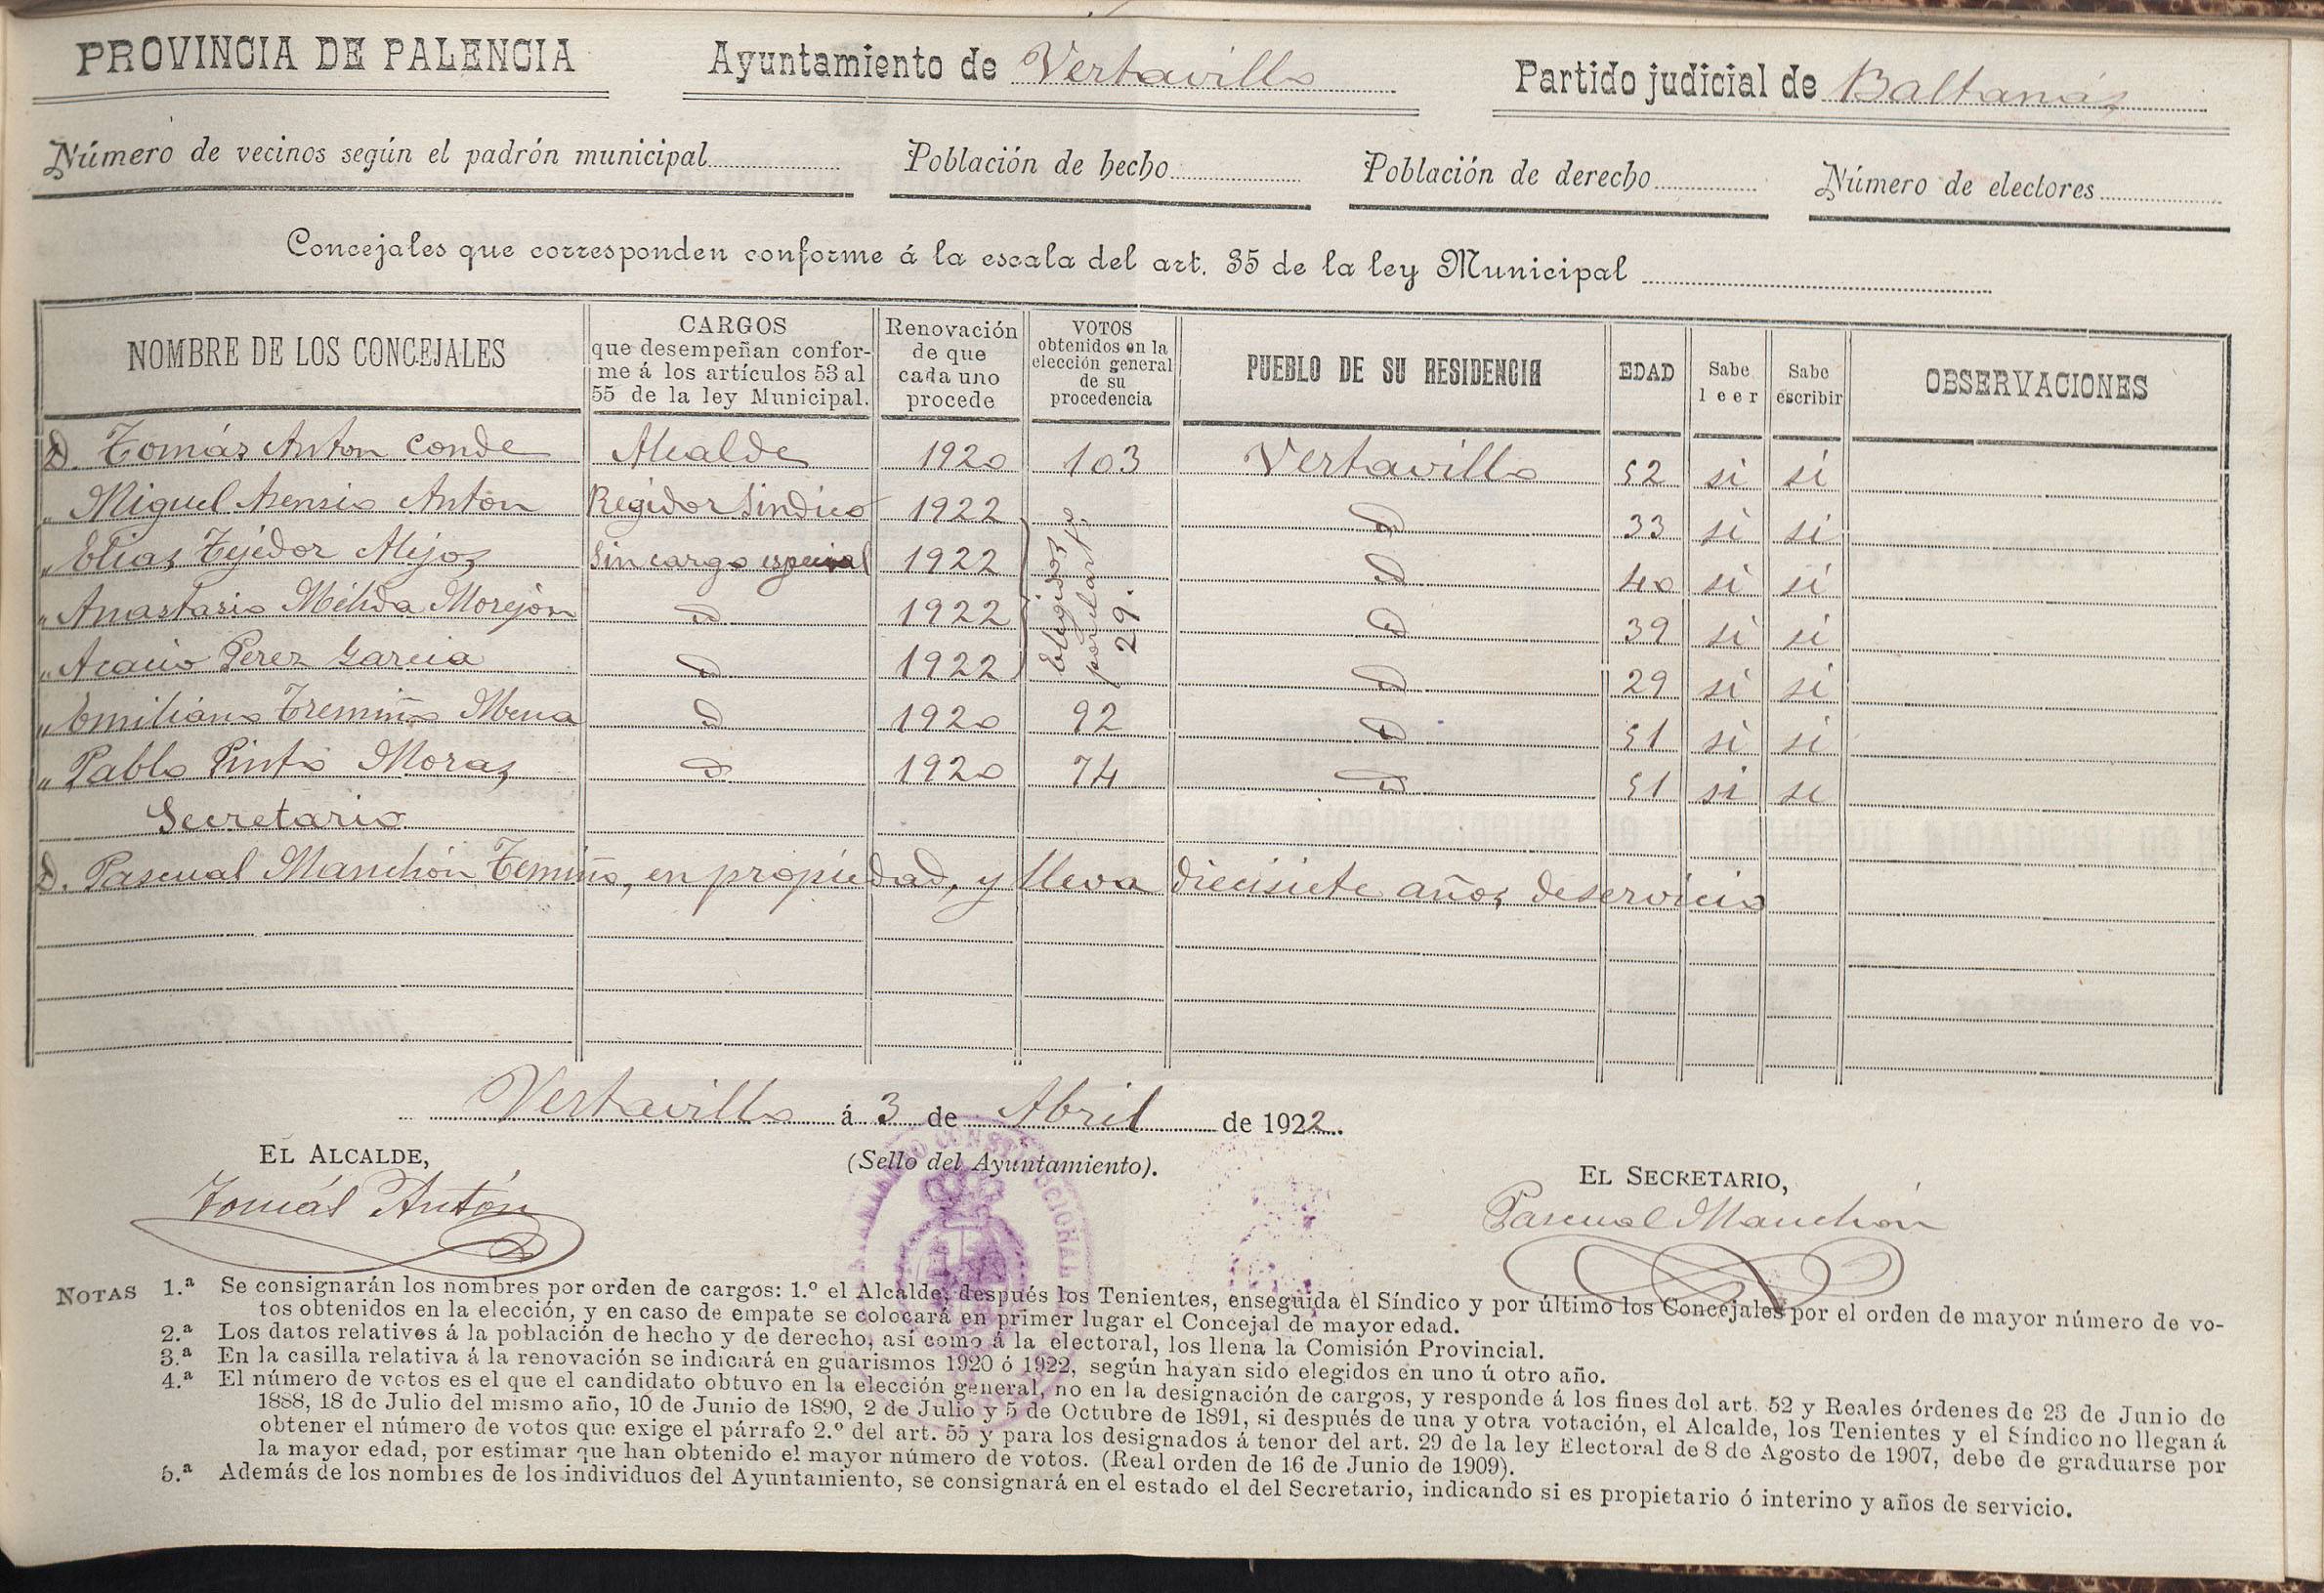 PROVINCIA DE PALENCIA Ayuntamiento de Vertavillo Partido judicial de Baltanás
Número de vecinos según el padrón municipal Población de hecho Población de derecho Número de electores
Concejales que corresponden conforme á la escala del art. 35 de la ley Municipal
NOMBRE DE LOS CONCEJALES
CARGOS
que desempeñan confor-
me á los artículos 53 al
55 de la ley Municipal.
Renovación
de que
cada uno
procede
VOTOS
obtenidos en la
elección general
de su
procedencia
PUEBLO DE SU RESIDENCIA
EDAD
Sabe
leer
Sabe
escribir
OBSERVACIONES
D. Tomás Anton Conde Alcalde 1920 103 Vertavillo 52 si si
" Miguel Asensio Antón Regidor Sindico 1922 D 33 si si
" Elias Tejedor Alejos Sin cargo especial 1922 D 40 si si
" Anastasio Mélida Morejón D 1922 D 39 si si
" Acacio Perez Garcia D 1922 D 29 si si
Elegidos
por el art.º
29.
" Emiliano Tremiño Mena D 1920 92 D 51 si si
" Pablo Pinto Moras D 1920 74 D 51 si si
Secretario
D. Pascual Manchón Temiño, en propiedad, y lleva diecisiete años de servicio
Vertavillo á 3 de Abril de 1922.
EL ALCALDE,
(Sello del Ayuntamiento).
EL SECRETARIO,
Tomás Antón
Pascual Manchón
CONSTITUCIONAL
NOTAS 1.ª Se consignarán los nombres por orden de cargos: 1.º el Alcalde, después los Tenientes, enseguida el Síndico y por último los Concejales por el orden de mayor número de vo-
tos obtenidos en la elección, y en caso de empate se colocará en primer lugar el Concejal de mayor edad.
2.ª Los datos relativos á la población de hecho y de derecho, así como á la electoral, los llena la Comisión Provincial.
3.ª En la casilla relativa á la renovación se indicará en guarismos 1920 ó 1922, según hayan sido elegidos en uno ú otro año.
4.ª El número de votos es el que el candidato obtuvo en la elección general, no en la designación de cargos, y responde á los fines del art. 52 y Reales órdenes de 23 de Junio de
1888, 18 de Julio del mismo año, 10 de Junio de 1890, 2 de Julio y 5 de Octubre de 1891, si después de una y otra votación, el Alcalde, los Tenientes y el Síndico no llegan á
obtener el número de votos que exige el párrafo 2.º del art. 55 y para los designados á tenor del art. 29 de la ley Electoral de 8 de Agosto de 1907, debe de graduarse por
la mayor edad, por estimar que han obtenido el mayor número de votos. (Real orden de 16 de Junio de 1909).
5.ª Además de los nombres de los individuos del Ayuntamiento, se consignará en el estado el del Secretario, indicando si es propietario ó interino y años de servicio.